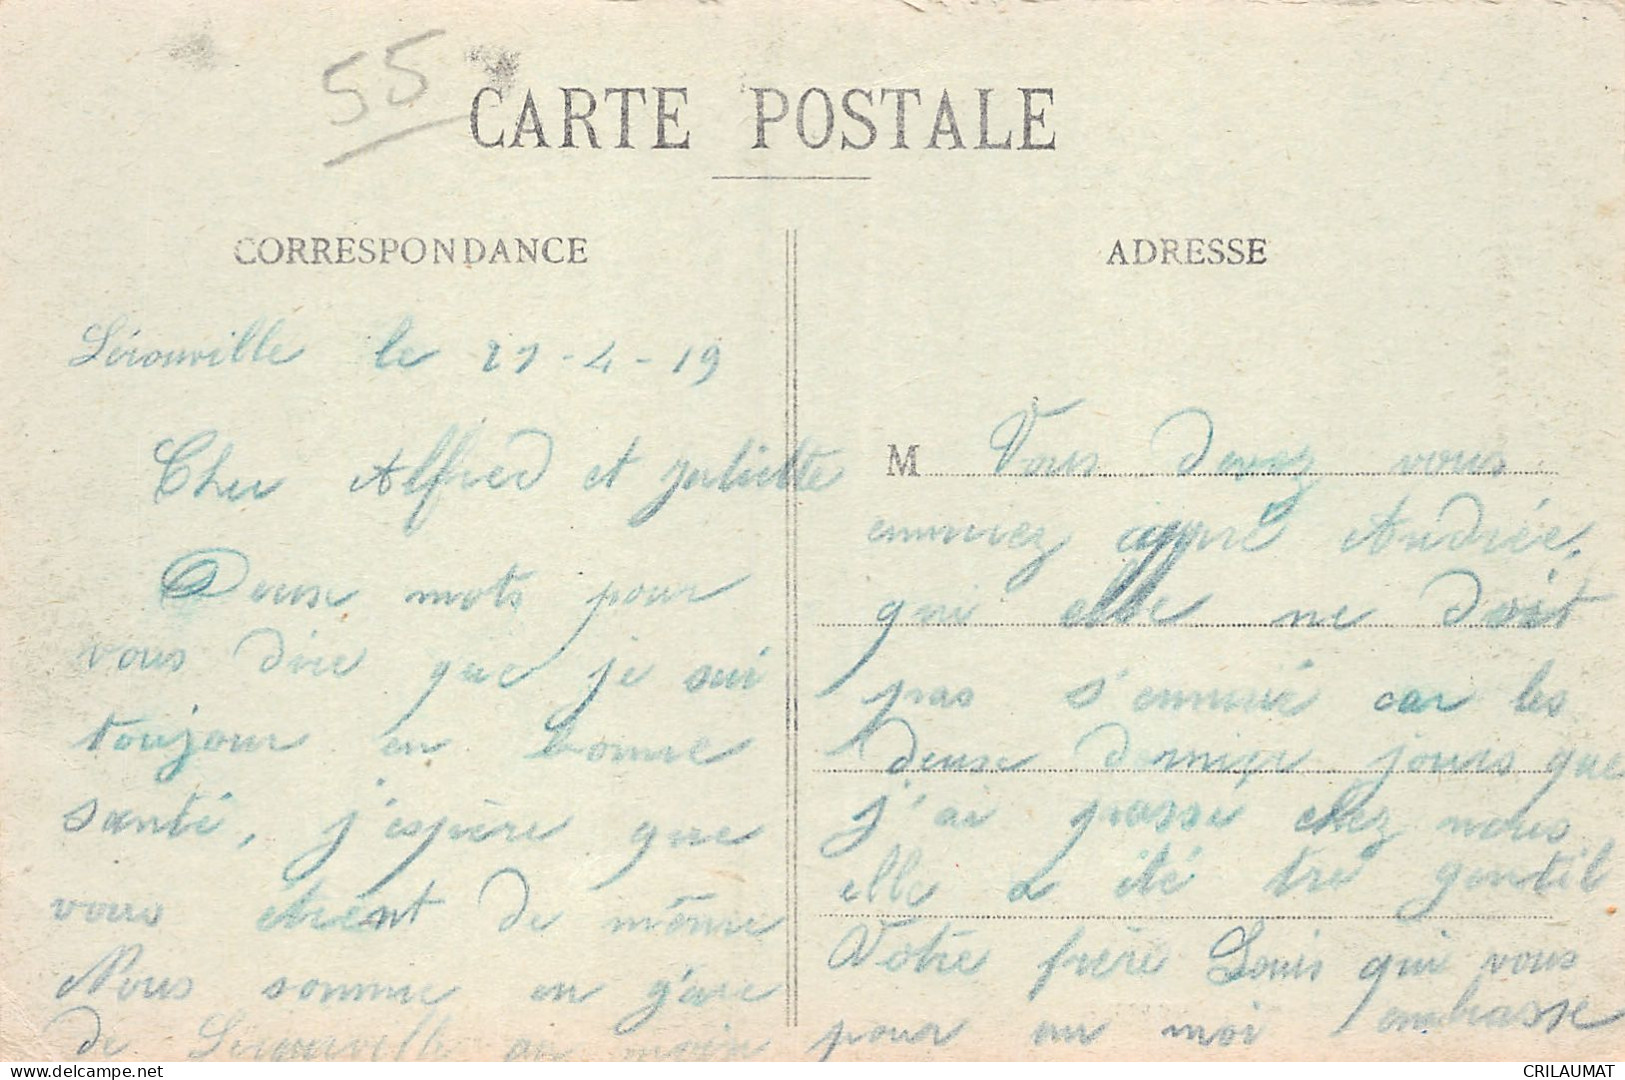 55
CARTE POSTALE
CORRESPONDANCE
ADRESSE
Lérouville le 21-4-19
Cher Alfred et Juliette
Deux mots pour
vous dire que je sui
toujour en bonne
santé, j'espère que
vous étient de même
Nous somme en gare
de Lérouville
M Vous devez vous
ennuiez apprè Andrée,
qui elle ne doit
pas s'ennuié car les
deux dernier jours que
j'ai passé chez nous
elle a été tre gentil
Votre frère Louis qui vous
pour un moi embrasse
delcampe.net
CRILAUMAT